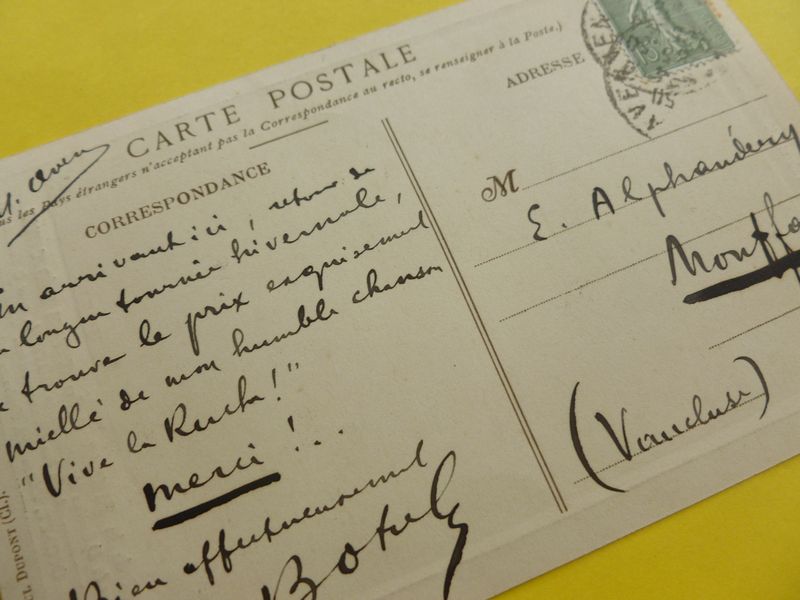 CARTE POSTALE
les Pays étrangers n'acceptant pas la Correspondance au recto, se renseigner à la Poste.)
CORRESPONDANCE
arrivant ici, retour de
longue tournée hivernale,
trouve le prix exquisement
miellé de mon humble chanson
"Vive la Ruche!"
merci!..
Bien affectueusement
Botrel
DUPONT
ADRESSE
M
E. Alphandéry
Montfa
(Vaucluse)